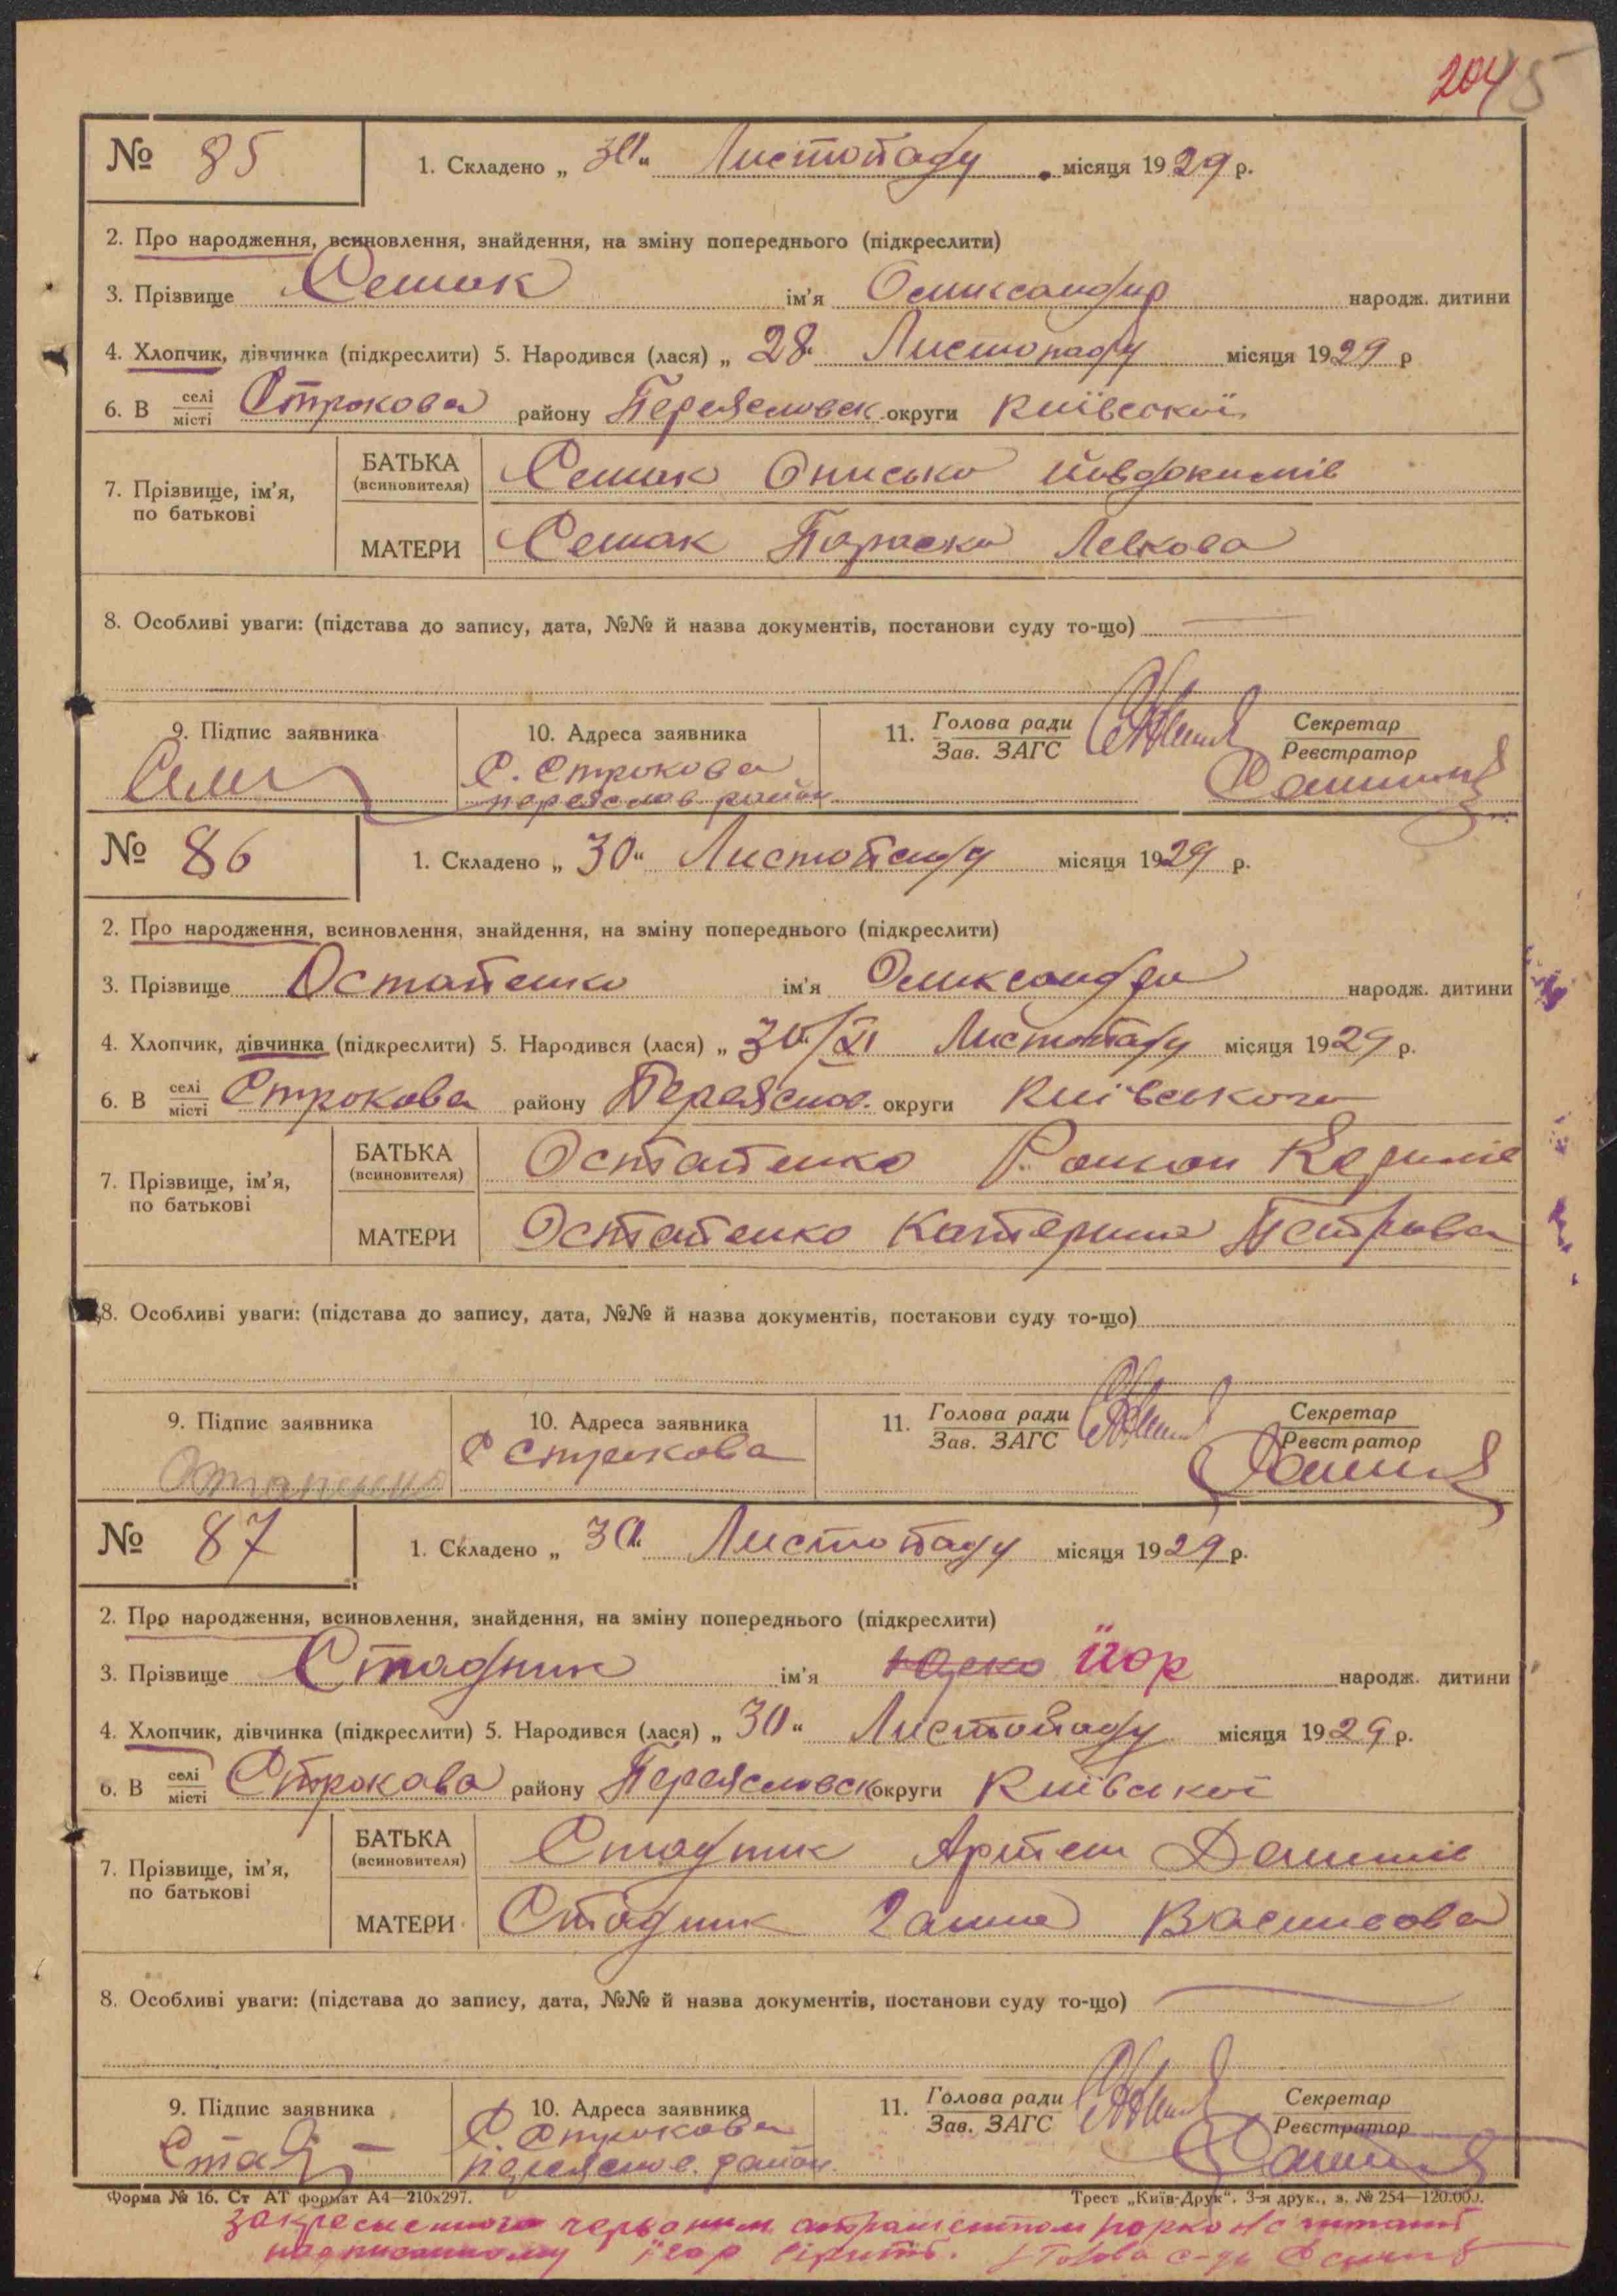 204 5
№ 85 1. Складено „ 30 “ Листопаду місяця 1929 р.
2. Про народження, всиновлення, знайдення, на зміну попереднього (підкреслити)
3. Прізвище Семак ім'я Оликсандир народж. дитини
4. Хлопчик, дівчинка (підкреслити) 5. Народився (лася) „ 28 “ Листопаду місяця 1929 р
6. В селі місті Строкова району Переясловск. округи Київської
7. Прізвище, ім'я, по батькові
БАТЬКА (всиновителя) Семак Онисько Йовдокимів
МАТЕРИ Семак Параска Левкова
8. Особливі уваги: (підстава до запису, дата, №№ й назва документів, постанови суду то-що)
9. Підпис заявника 10. Адреса заявника 11. Голова ради Зав. ЗАГС Секретар Реєстратор
С. Строкова
переяслов район
№ 86 1. Складено „ 30 “ Листопаду місяця 1929 р.
2. Про народження, всиновлення, знайдення, на зміну попереднього (підкреслити)
3. Прізвище Остапенко ім'я Оликсандра народж. дитини
4. Хлопчик, дівчинка (підкреслити) 5. Народився (лася) „ 30/XI Листопаду місяця 1929 р.
6. В селі місті Строкова району Переяслов. округи Київського
7. Прізвище, ім'я, по батькові
БАТЬКА (всиновителя) Остапенко Роман
МАТЕРИ Остапенко Катерина Петрова
8. Особливі уваги: (підстава до запису, дата, №№ й назва документів, постанови суду то-що)
9. Підпис заявника 10. Адреса заявника 11. Голова ради Зав. ЗАГС Секретар Реєстратор
Остапенко С Строкова
№ 87 1. Складено „ 30 “ Листопаду місяця 1929 р.
2. Про народження, всиновлення, знайдення, на зміну попереднього (підкреслити)
3. Прізвище Стадник ім'я Юрко Їгор народж. дитини
4. Хлопчик, дівчинка (підкреслити) 5. Народився (лася) „ 30 “ Листопаду місяця 1929 р.
6. В селі місті Строкова району Переясловск округи Київської
7. Прізвище, ім'я, по батькові
БАТЬКА (всиновителя) Стадник Артем
МАТЕРИ Стадник Ганна Василова
8. Особливі уваги: (підстава до запису, дата, №№ й назва документів, постанови суду то-що)
9. Підпис заявника 10. Адреса заявника 11. Голова ради Зав. ЗАГС Секретар Реєстратор
Стад С Строкова
переяслов. район
Форма № 16. Ст АТ формат А4—210х297. Трест „Київ-Друк“. 3-я друк., з. № 254—120.000.
червоним
Їгор вірить. Голова с-ди